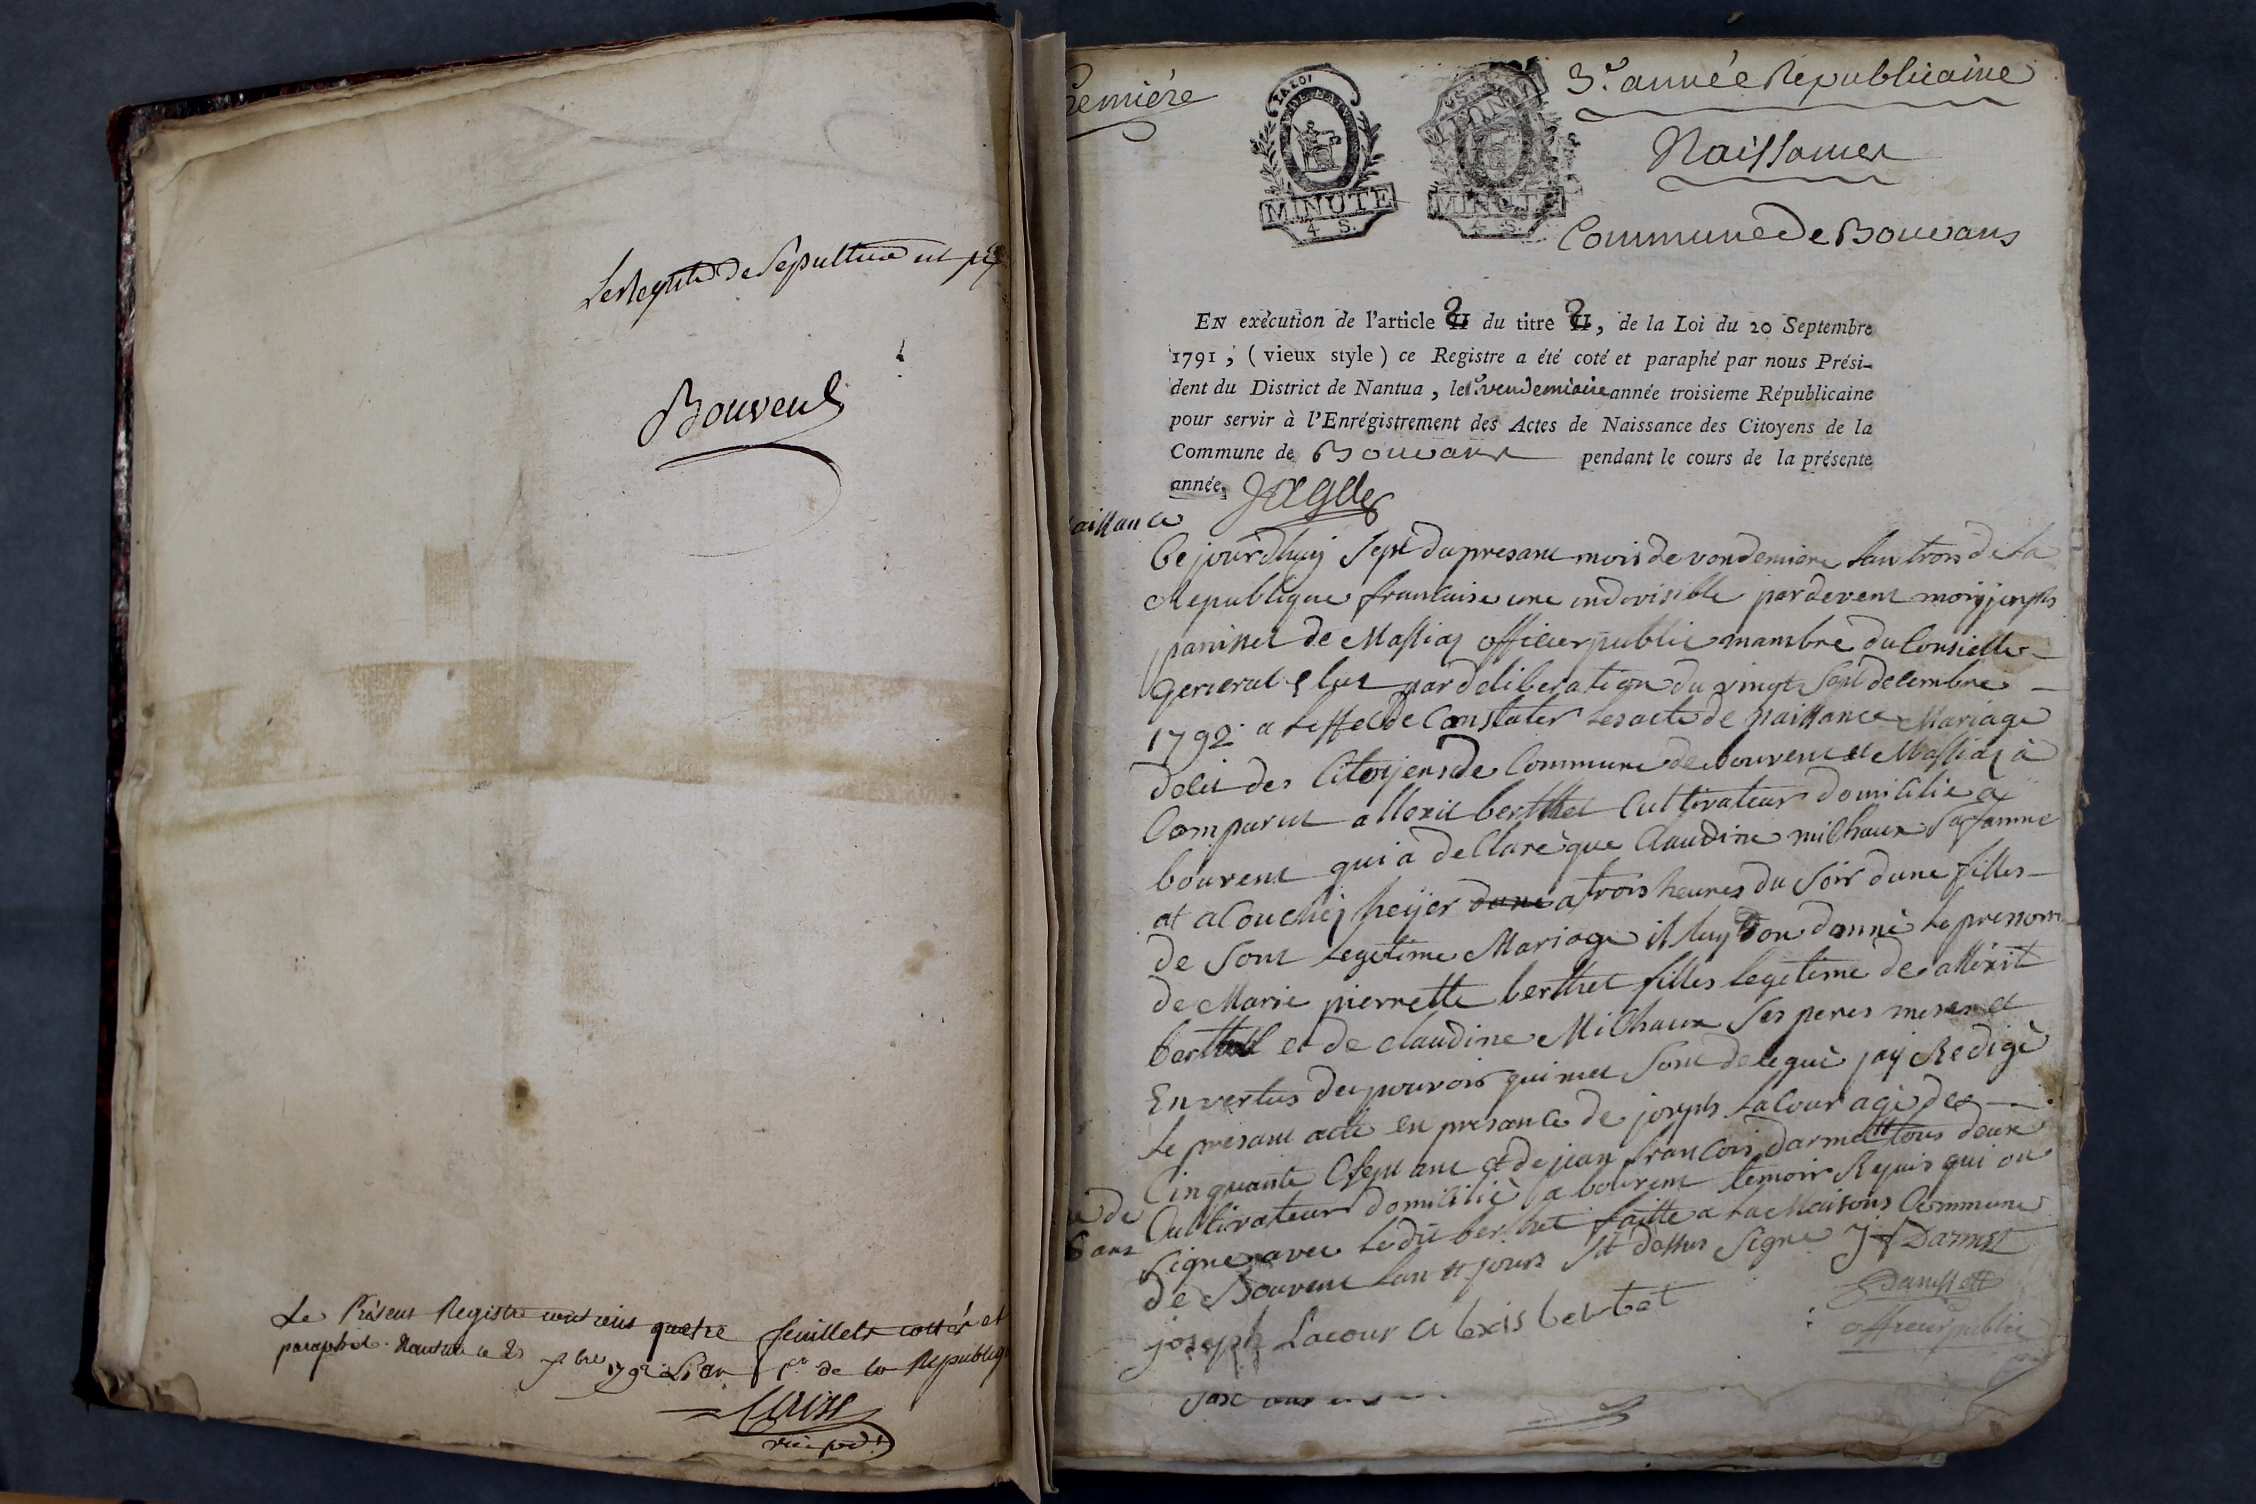 Le Registre de Sepulture est
Bouvent
Le Présent Registre contenant quatre feuillets cottés et
paraphés. Nantua le 1792 L'an 1er de la Republiq
vice présdt
remière
3e année Républicaine
LA LOI
MINUTE
4 S.
MINUTE
4 S.
Naissances
Commune de Bouvans
EN exécution de l'article II du titre II, de la Loi du 20 Septembre
1791, (vieux style) ce Registre a été coté et paraphé par nous Prési-
dent du District de Nantua, le 1er vendemiaire année troisieme Républicaine
pour servir à l'Enrégistrement des Actes de Naissance des Citoyens de la
Commune de Bouvans pendant le cours de la présente
année.
aissance
Ce jourdhuy Sept du presant mois de vendemiere lan trois de La
Republique francaise une indivisible pardevent moy joseph
paninet de Massiaz officier public mambre du Consielle
general elut par deliberation du vingt Sept decembre
1792 a leffet de Constater les acte de naissance Mariage
deces des Citoyens de Commune de bouvent et Massiaz à
Comparut allexit berthet Cultivateur domicilie a
bouvent qui à declarè que Claudine milhaux Sa famme
at acouchéz heyer dune a trois heures du Soir dune filles
de Sont legetime Mariage il luy on donnè le prenom
de Marie pierrette berthet filles legetime de allexit
berthet et de claudine Milhaux Ses peres meres et
En vertus des pouvoir qui met Sont deleguè jay Redigè
le presant acte en presance de joseph Lacour agè de
Cinquante Sept ans et de jean francois darmet tous deux
Cultivateur domiciliè a bouvent temoir Requis qui on
Signe avec ledit berthet faitte a La Maisons Commune
de Bouvent lan et jours st dessus Signe J f Darmet
joseph Lacour alexis bertet
officier public
e de
ans